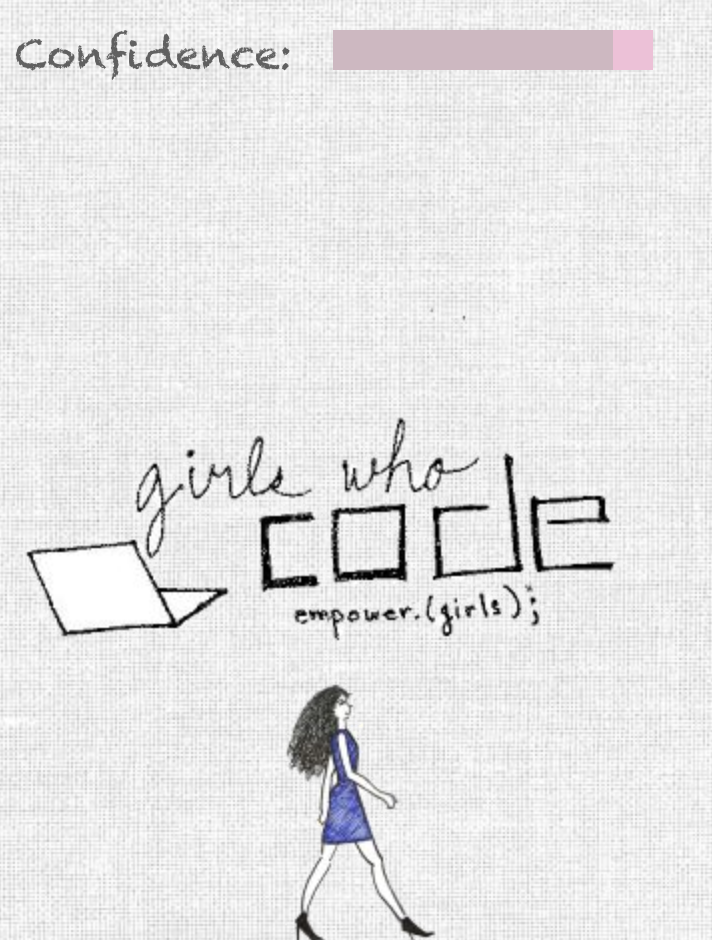 Confidence:
girls who
code
empower.(girls);